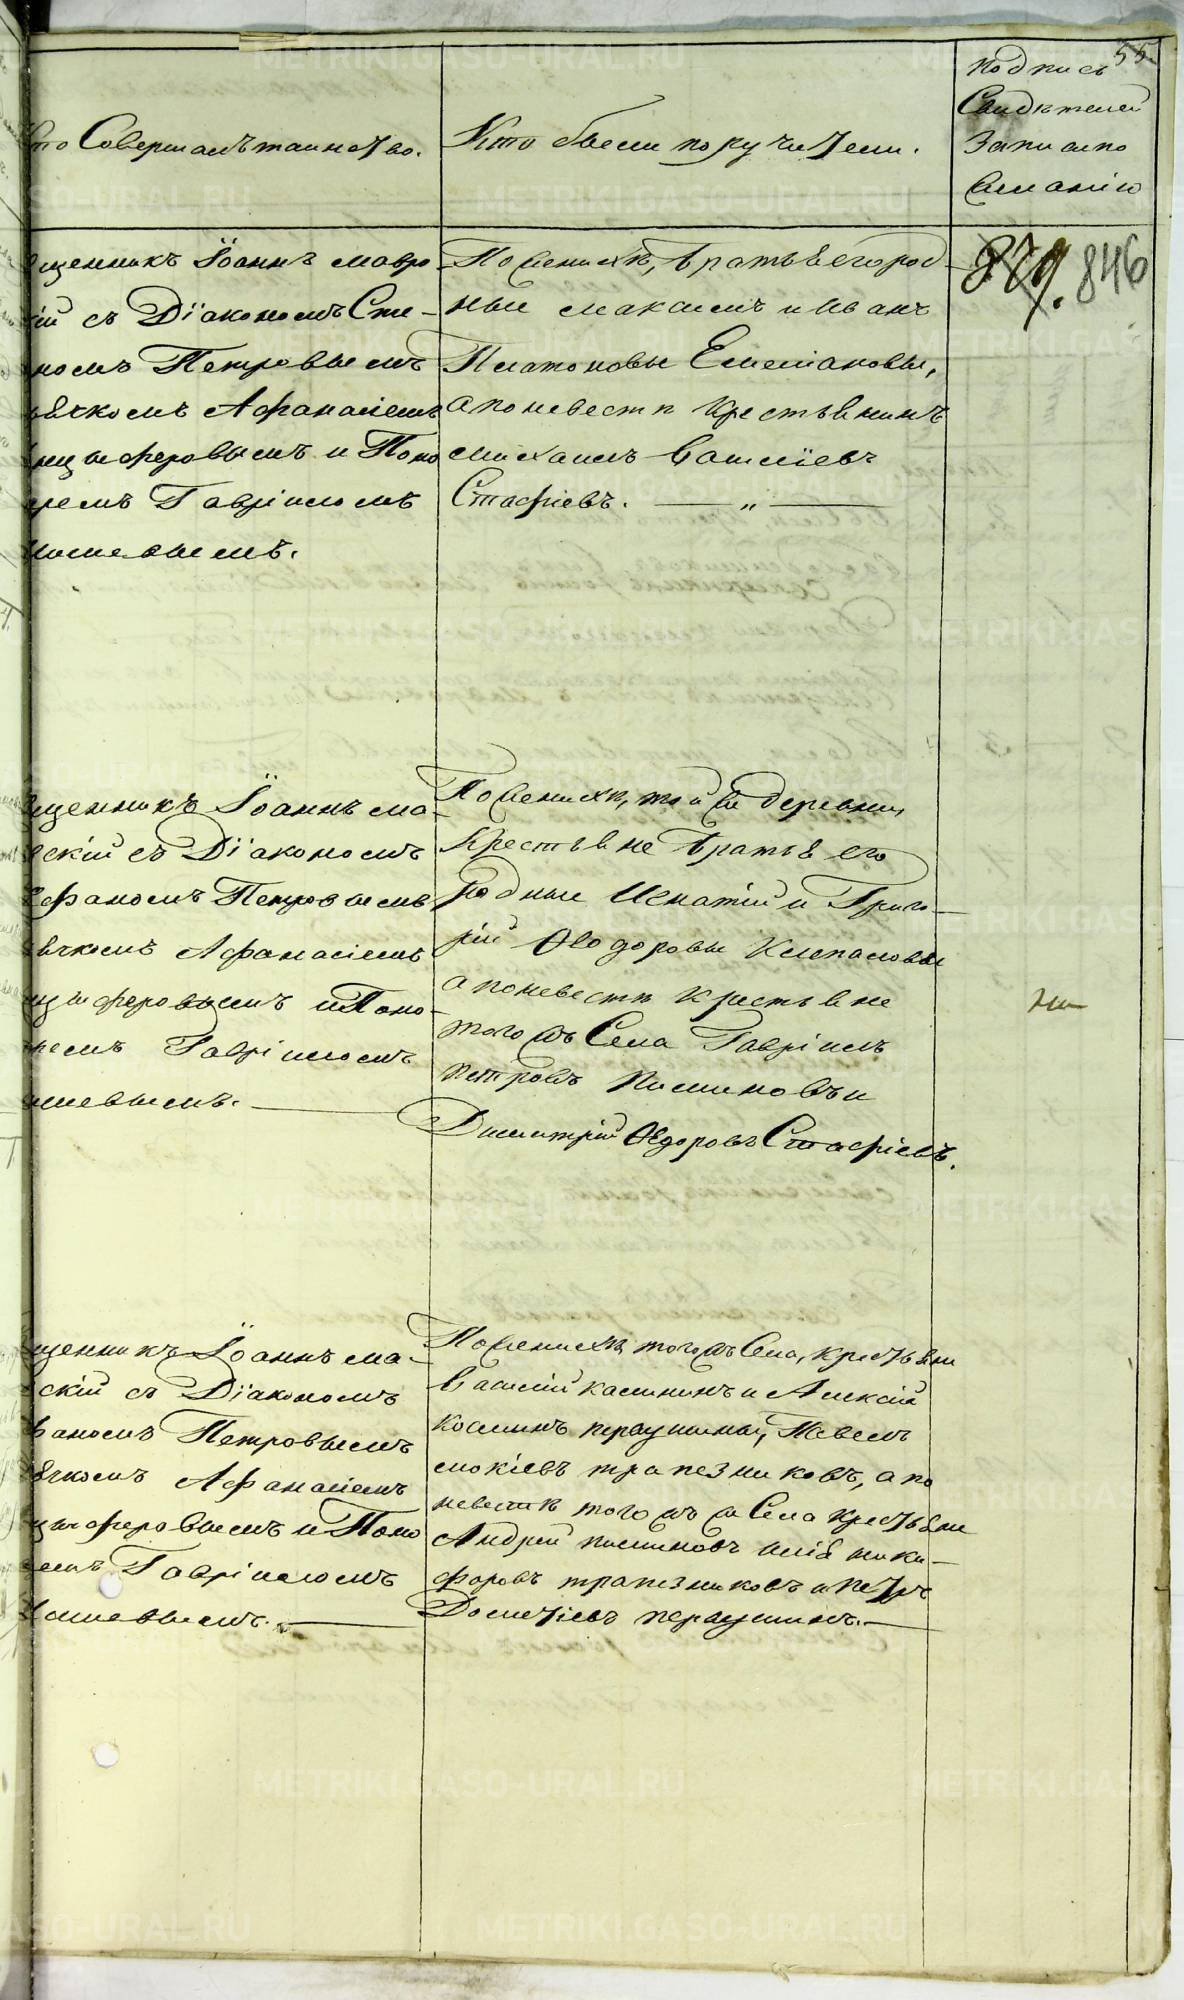 55.
то Совершалъ таинство.
Кто были поручители.
подпись
Свидѣтелей
Записа по
желанію
879. 846
щенникъ Іоаннъ мавро
ій съ Діакономъ Сте-
номъ Петровымъ
ячкомъ Афанасіемъ
нцыферовымъ и Поно
ремъ Гавріиломъ
ышевымъ.
По женихѣ, братья его род
ныи максимъ и Иванъ
Платоновы Емеліановы,
а по невестѣ крестьянинъ
михаилъ Василіевъ
Стафіевъ. — " —
щенникъ Іоаннъ ма-
скій съ Діакономъ
ефаномъ Петровымъ
ячкомъ Афанасіемъ
цыферовымъ и Поно-
ремъ Гавріиломъ
ышевымъ. —
По женихѣ, той же деревни
Крестьяне братья его
родные Игнатій и Григо-
рій Ѳеодоровы Клепаловы
а по невестѣ крестьяне
тогожъ Села Гавріилъ
петровъ Пишновъ и
Димитрій Ѳедоровъ Стафіевъ.
щенникъ Іоаннъ ма-
скій съ Діакономъ
аномъ Петровымъ
ячкомъ Афанасіемъ
цыферовымъ и Поно
емъ Гавріиломъ
ышевымъ. —
По женихѣ тогожъ Села, крестьяни
Василій калининъ и Алексій
козминъ первушины, Павелъ
мокіевъ трапезниковъ, а по
невестѣ того жъ Села крестьяне
Андрей пишновъ илія ники-
форовъ трапезниковъ и петръ
Дометіевъ первушинъ. —
METRIKI.GASO-URAL.RU